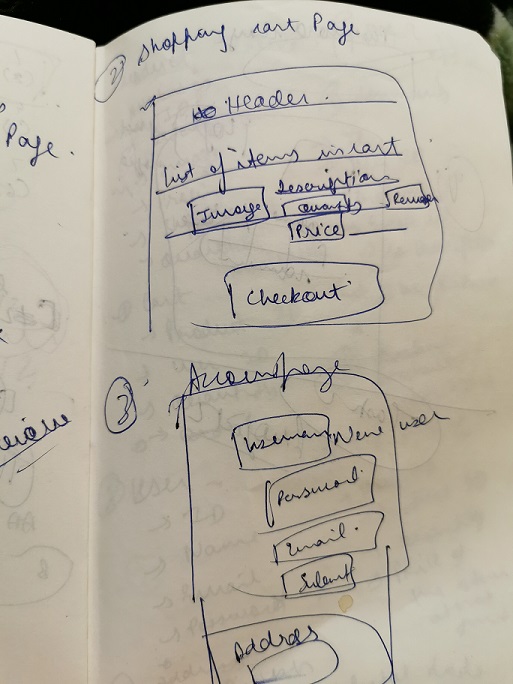 Page.
2) Shopping cart Page
Header.
List of items in cart
Description
Image Quantity Remove
Price
Checkout
3) Account page
Username New user
Password
Email
Submit
Address